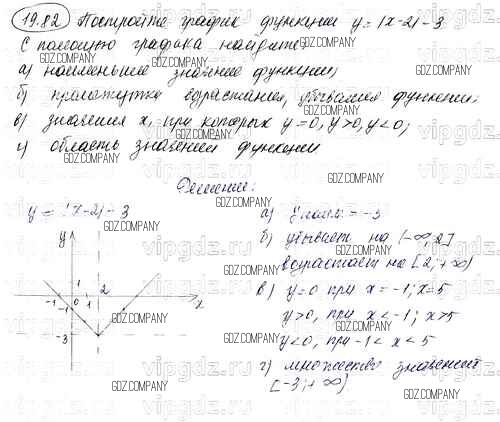 19.82 Постройте график функции y = |x-2| - 3
С помощью графика найдите
а) наименьшее значение функции;
б) промежутки возрастания, убывания функции;
в) значения x, при которых y=0, y>0, y<0;
г) область значений функции
Решение:
y = |x-2| - 3
а) yнаим = -3
б) убывает на (-∞; 2]
возрастает на [2; +∞)
в) y=0 при x=-1; x=5
y>0, при x<-1; x>5
y<0, при -1<x<5
г) множество значений
[-3; +∞)
y
1
2
-1
0
1
x
-1
-3
GDZ.COMPANY
vipgdz.ru